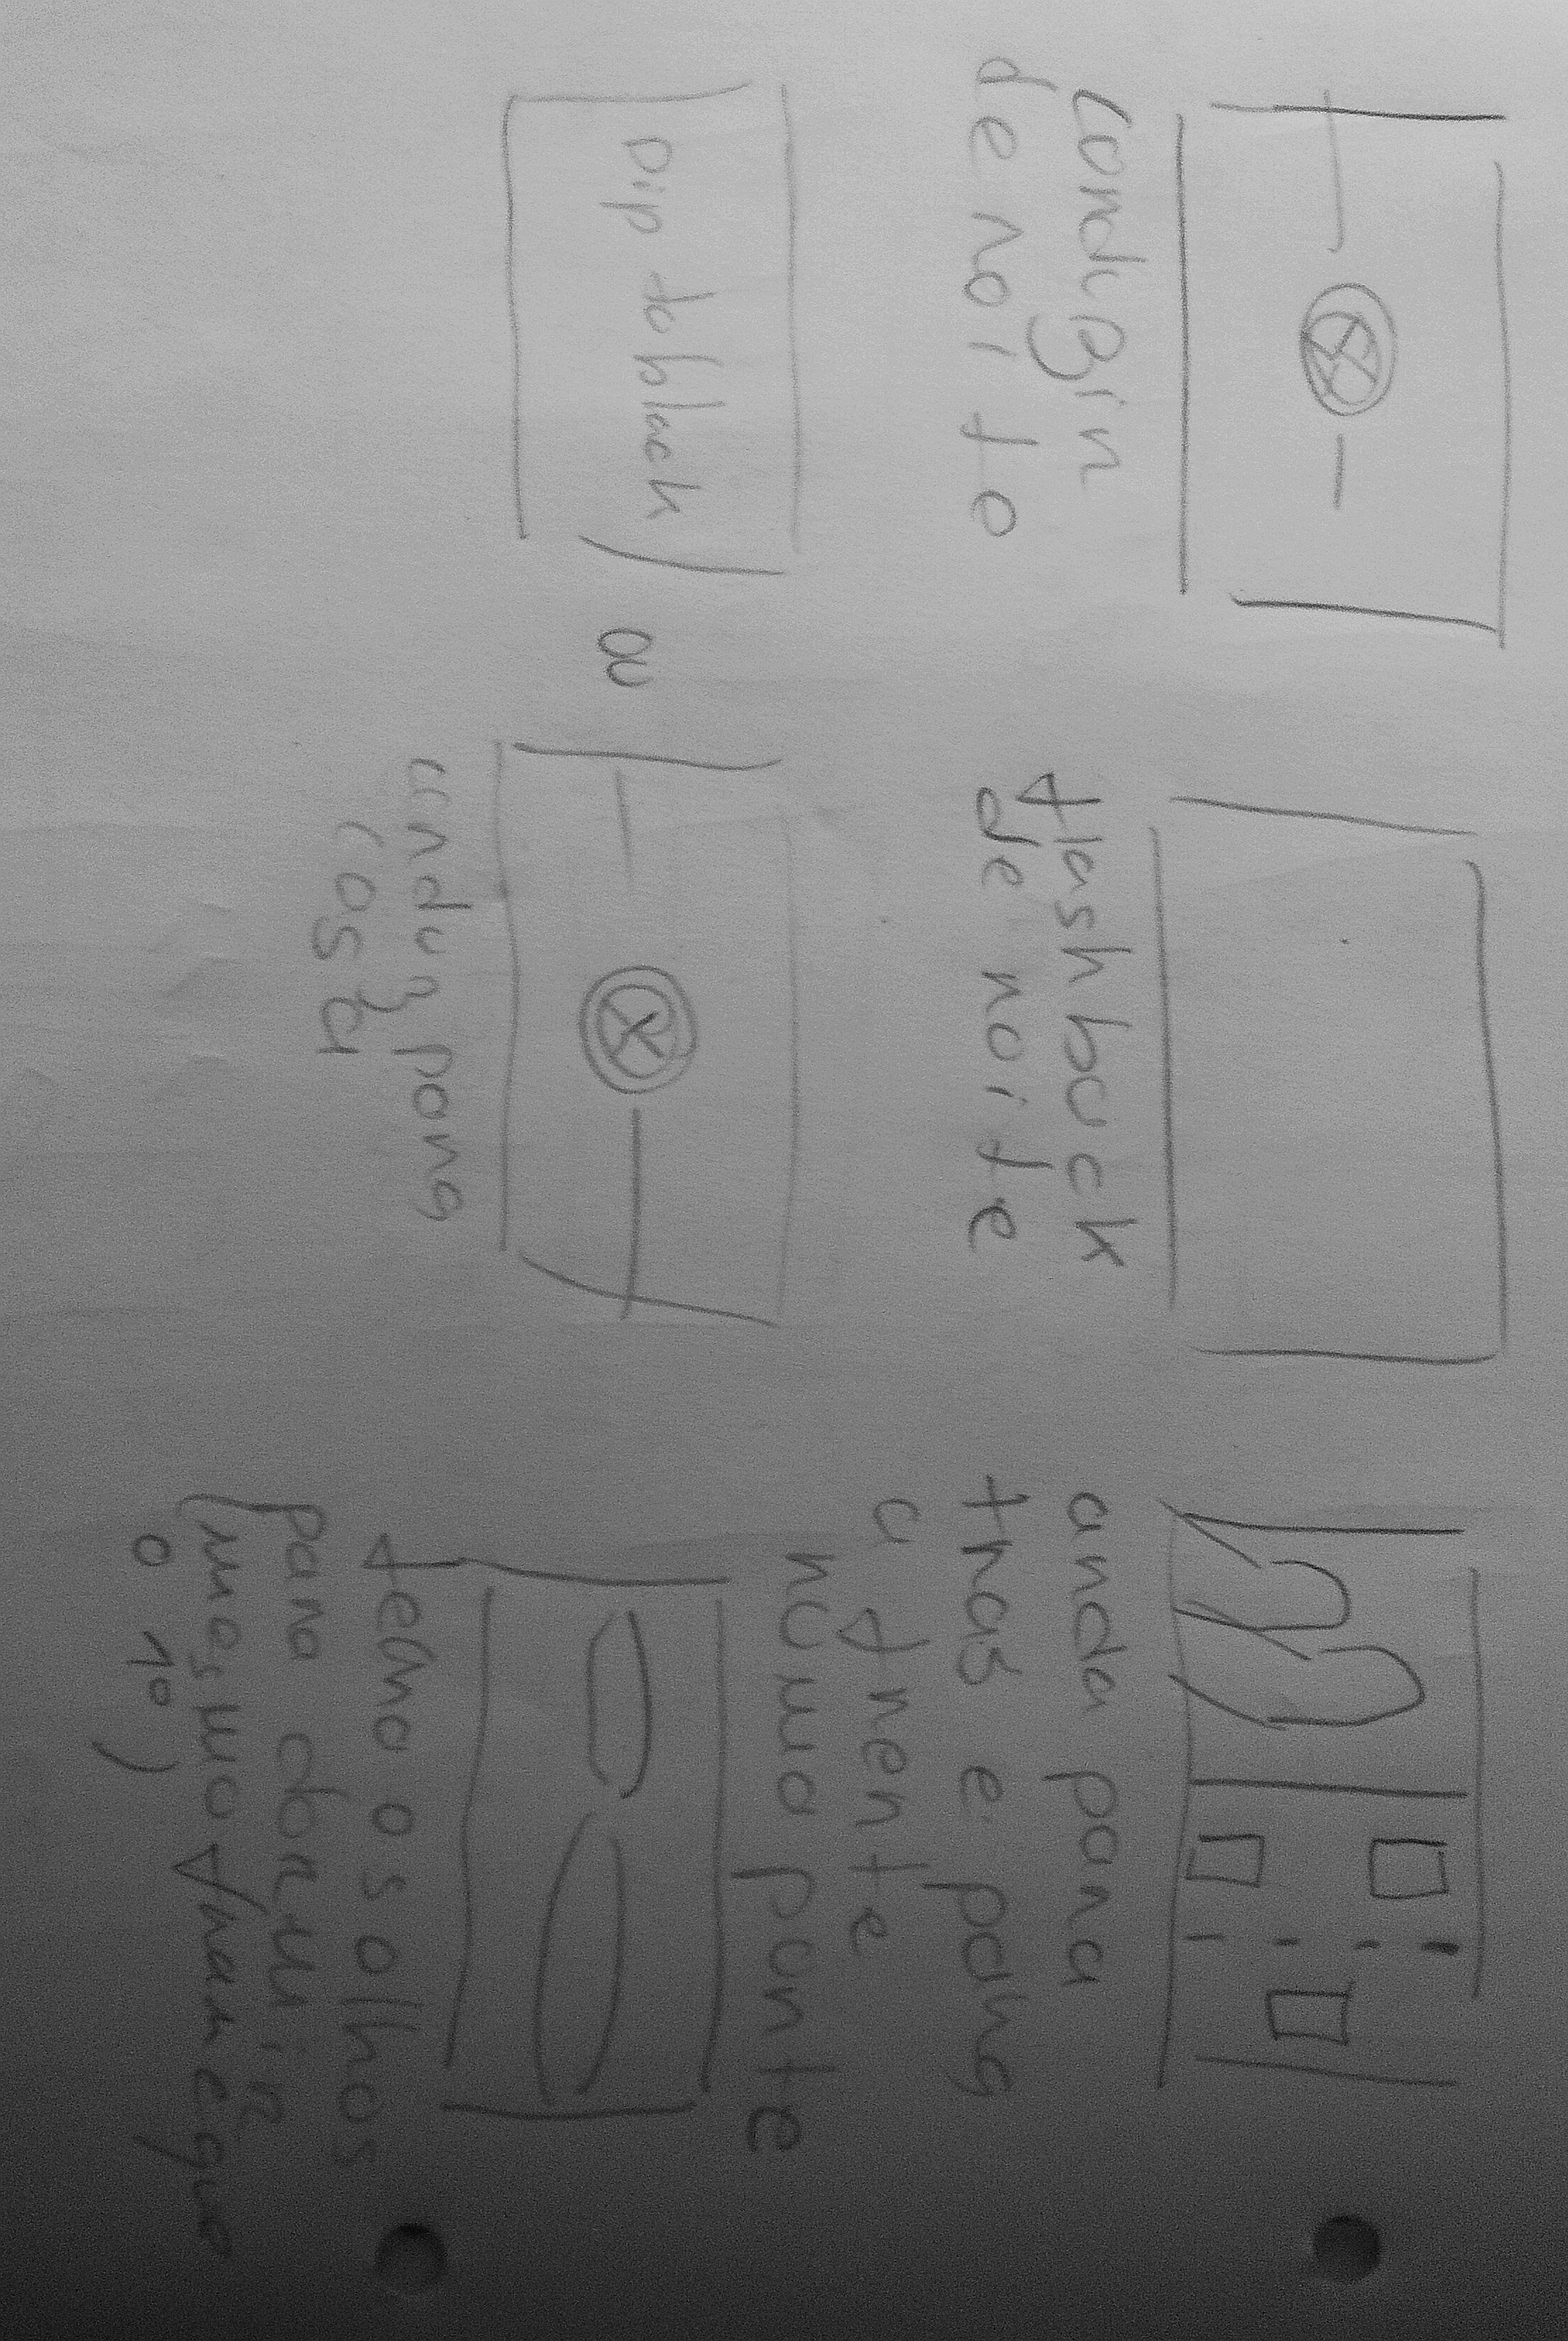 conduzir
de noite
flashback
de noite
anda para
tras e para
a frente
numa ponte
Dip to black
ou
conduz para
casa
fecha os olhos
para dormir
(mesmo frame que
o 1º)